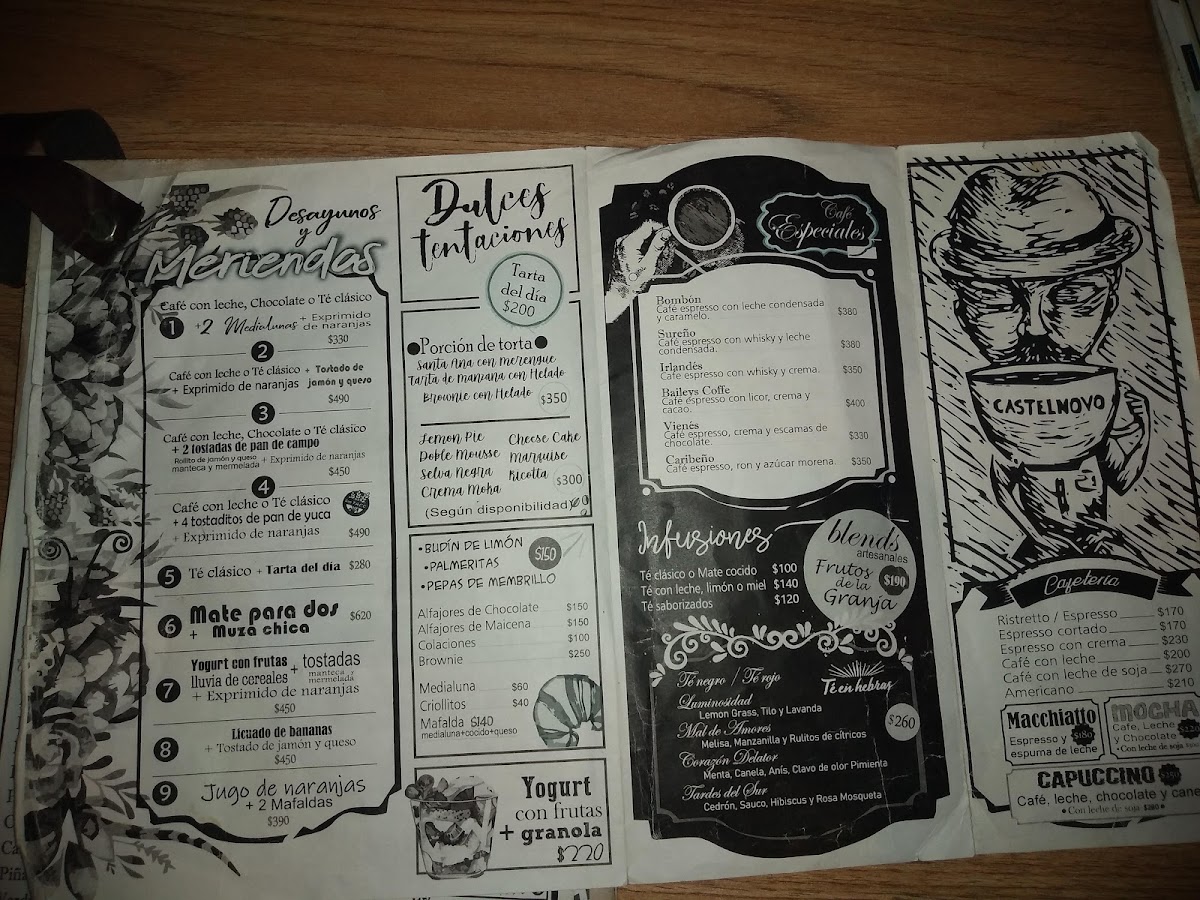 Desayunos
y
Meriendas
Café con leche, Chocolate o Té clásico
1 +2 Medialunas + Exprimido
de naranjas
$330
2
Café con leche o Té clásico + Tostado de
+ Exprimido de naranjas jamón y queso
$490
3
Café con leche, Chocolate o Té clásico
+ 2 tostadas de pan de campo
Rollito de jamón y queso
manteca y mermelada + Exprimido de naranjas
$450
4
Café con leche o Té clásico
+ 4 tostaditos de pan de yuca
+ Exprimido de naranjas $490
5 Té clásico + Tarta del día $280
6 Mate para dos $620
+ Muza chica
Yogurt con frutas + tostadas
7 lluvia de cereales manteca y
mermelada
+ Exprimido de naranjas
$450
Licuado de bananas
8 + Tostado de jamón y queso
$450
9 Jugo de naranjas
+ 2 Mafaldas
$390
Dulces
tentaciones
Tarta
del día
$200
Porción de torta
Santa Ana con merengue
Tarta de manzana con Helado
Brownie con Helado $350
Lemon Pie Cheese Cake
Doble Mousse Marquise
Selva Negra Ricotta
Crema Moka $300
(Según disponibilidad)
•BUDÍN DE LIMÓN $150
•PALMERITAS
•PEPAS DE MEMBRILLO
Alfajores de Chocolate $150
Alfajores de Maicena $150
Colaciones $100
Brownie $250
Medialuna $60
Criollitos $40
Mafalda $140
medialuna+cocido+queso
Yogurt
con frutas
+ granola
$220
Café
Especiales
Bombón
Café espresso con leche condensada
y caramelo. $380
Sureño
Café espresso con whisky y leche
condensada. $380
Irlandés
Café espresso con whisky y crema. $350
Baileys Coffe
Café espresso con licor, crema y
cacao. $400
Vienés
Café espresso, crema y escamas de
chocolate. $330
Caribeño
Café espresso, ron y azúcar morena. $350
Infusiones
Té clásico o Mate cocido $100
Té con leche, limón o miel $140
Té saborizados $120
blends
artesanales
Frutos
de la
Granja
$190
Té negro / Té rojo
Té en hebras
$260
Luminosidad
Lemon Grass, Tilo y Lavanda
Mal de Amores
Melisa, Manzanilla y Rulitos de cítricos
Corazón Delator
Menta, Canela, Anís, Clavo de olor Pimienta
Tardes del Sur
Cedrón, Sauco, Hibiscus y Rosa Mosqueta
CASTELNOVO
Cafetería
Ristretto / Espresso $170
Espresso cortado $170
Espresso con crema $230
Café con leche $200
Café con leche de soja $270
Americano $210
Macchiatto
Espresso y $180
espuma de leche
MOCHA
Café, Leche
y Chocolate
• Con leche de soja
CAPUCCINO
Café, leche, chocolate y cane
• Con leche de soja $280 •
Piña